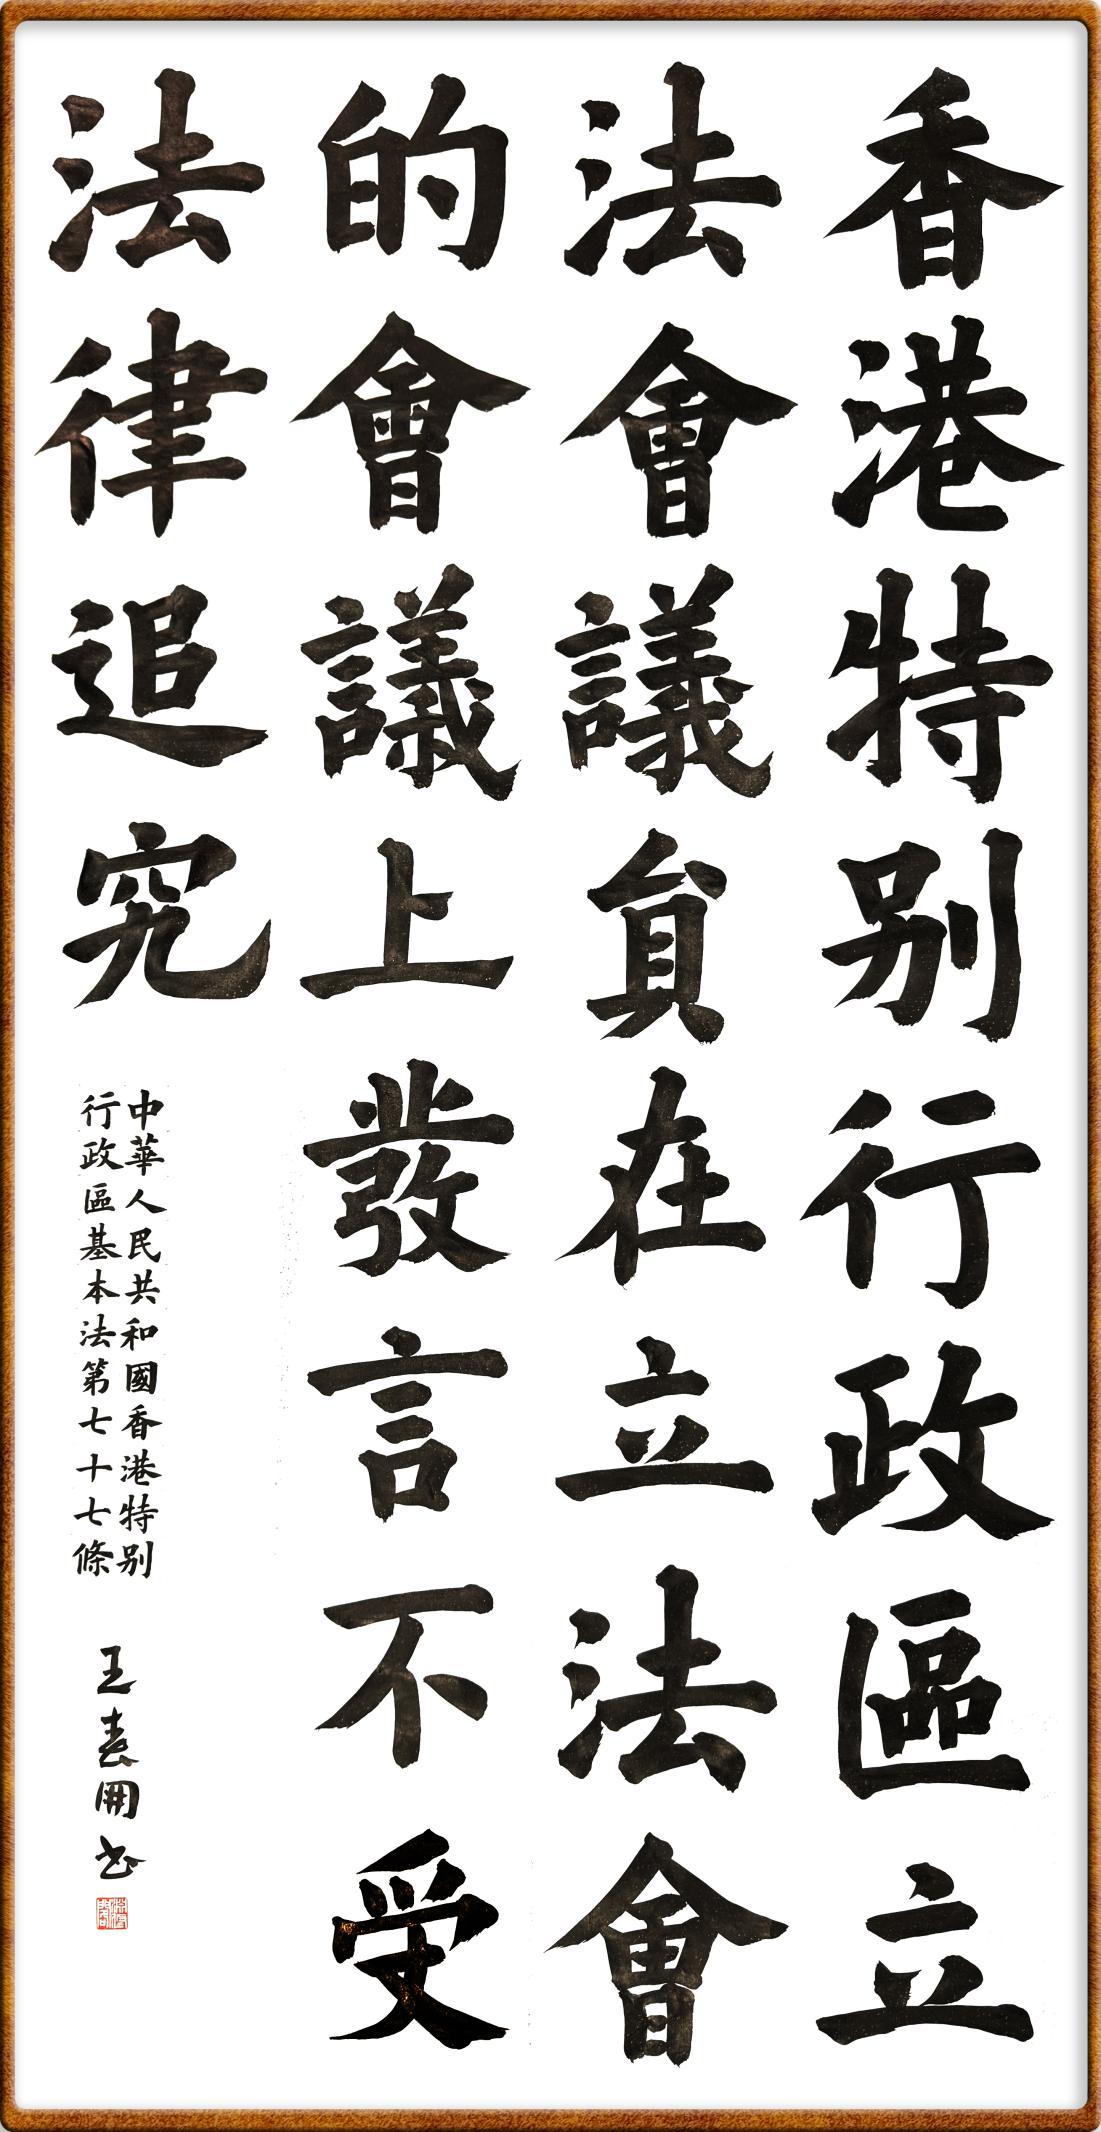 香港特别行政區立
法會議員在立法會
的會議上發言不受
法律追究
中華人民共和國香港特别
行政區基本法第七十七條
王春開书